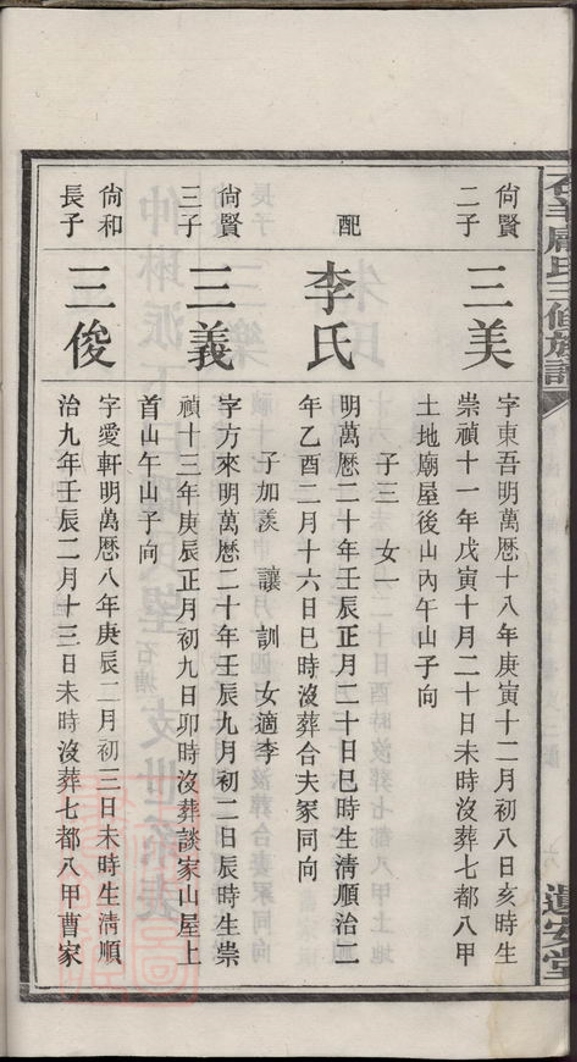 尙賢二子
三美
字東吾明萬厯十八年庚寅十二月初八日亥時生
崇禎十一年戊寅十月二十日未時沒葬七都八甲
土地廟屋後山內午山子向
子三 女一
配
李氏
明萬厯二十年壬辰正月二十日巳時生淸順治二
年乙酉二月十六日巳時沒葬合夫冢同向
子加羨 讓 訓 女適李
尙賢三子
三義
字方來明萬厯二十年壬辰九月初二日辰時生崇
禎十三年庚辰正月初九日卯時沒葬談家山屋上
首山午山子向
尙和長子
三俊
字愛軒明萬厯八年庚辰二月初三日未時生淸順
治九年壬辰二月十三日未時沒葬七都八甲曹家
氏三修族譜
遺安堂